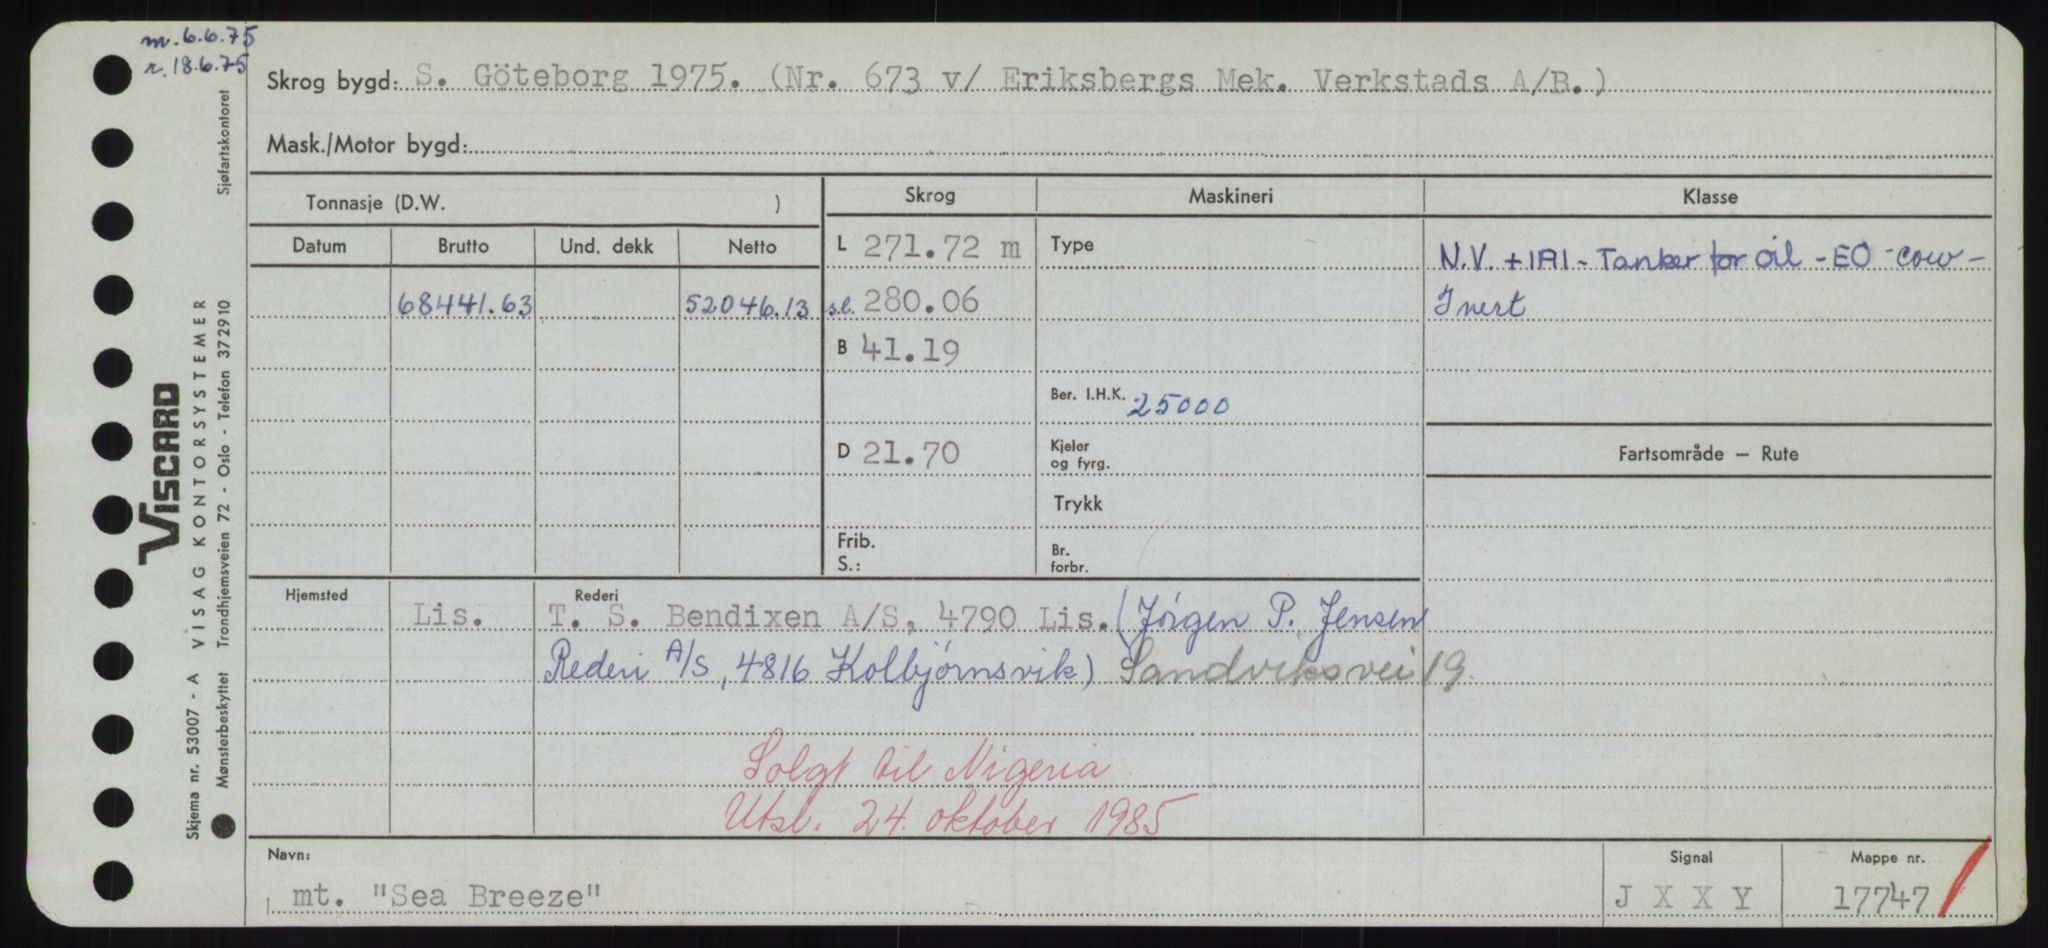 m. 6.6.75
r. 18.6.75
Skrog bygd: S. Göteborg 1975. (Nr. 673 v/ Eriksbergs Mek. Verkstads A/B.)
Mask./Motor bygd:
Tonnasje (D.W. )
Skrog
Maskineri
Klasse
Datum Brutto Und. dekk Netto
68441.63 52046.13
L 271.72 m
s.l. 280.06
B 41.19
D 21.70
Frib.
S.:
Type
Ber. I.H.K. 25000
Kjeler
og fyrg.
Trykk
Br.
forbr.
N.V. +1A1 - Tanker for oil - EO - cow -
Inert
Fartsområde — Rute
Hjemsted Rederi
Lis. T. S. Bendixen A/S, 4790 Lis. (Jörgen P. Jensen
Rederi A/S, 4816 Kolbjørnsvik) Sandviksvei 19.
Solgt til Nigeria
Utsl. 24. oktober 1985
Navn: Signal Mappe nr.
mt. "Sea Breeze" J X X Y 17747
VISCARD
VISAG KONTORSYSTEMER
Sjøfartskontoret
Skjema nr. 53007 - A
Mønsterbeskyttet Trondhjemsveien 72 - Oslo - Telefon 372910